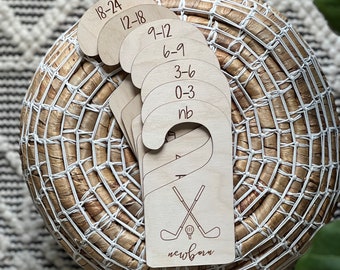 18-24
12-18
9-12
6-9
3-6
0-3
nb
newborn